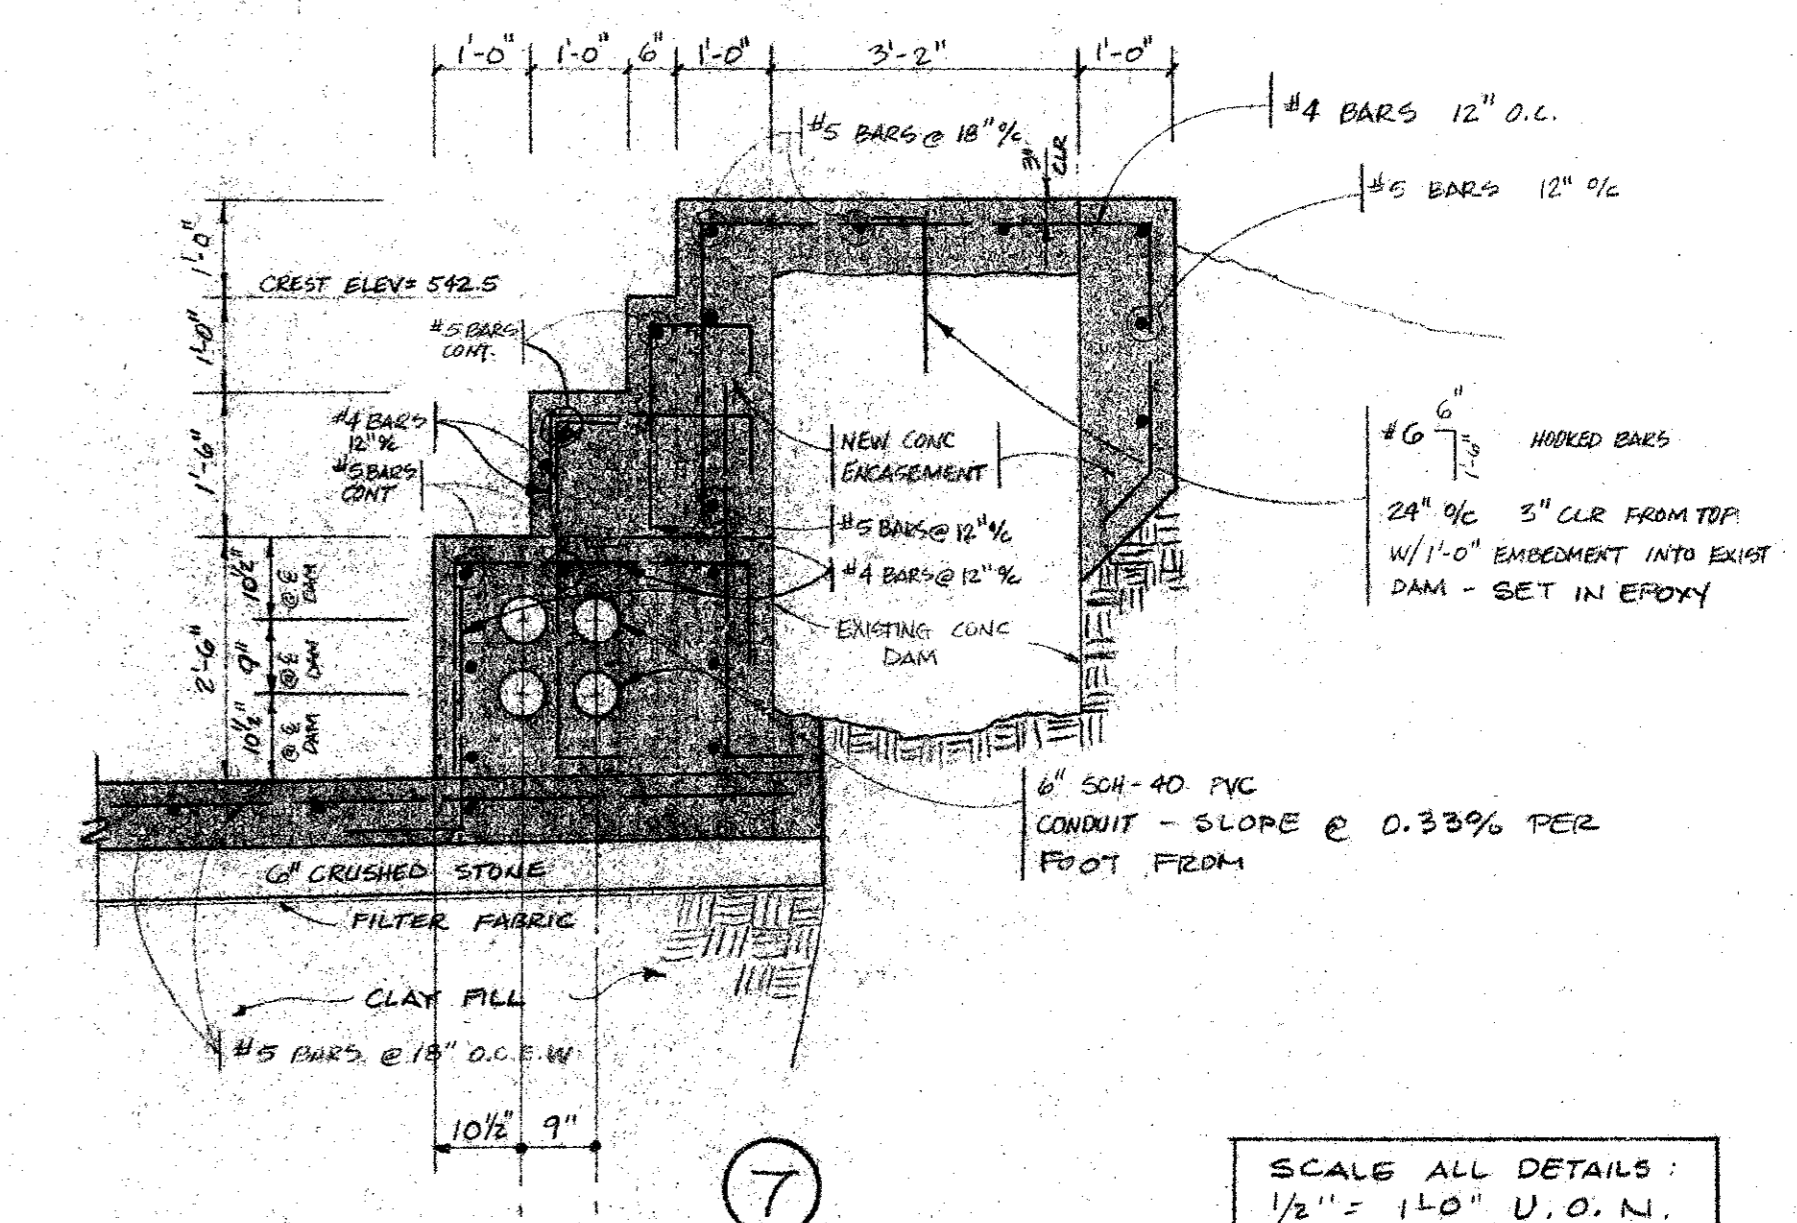 1'-0" 1'-0" 6" 1'-0" 3'-2" 1'-0"
#5 BARS @ 18" o/c
3" CLR
#4 BARS 12" O.C.
#5 BARS 12" o/c
1'-0"
CREST ELEV= 542.5
1'-0"
#5 BARS
CONT.
1'-6"
#4 BARS
12" o/c
#5 BARS
CONT
NEW CONC
ENCASEMENT
#5 BARS @ 12" o/c
#4 BARS @ 12" o/c
EXISTING CONC
DAM
#6 6" 1'-6" HOOKED BARS
24" o/c 3" CLR FROM TOP
W/1'-0" EMBEDMENT INTO EXIST
DAM - SET IN EPOXY
2'-6"
10½" @ ℄ DAM
9" @ ℄ DAM
10½" @ ℄ DAM
6" SCH-40 PVC
CONDUIT - SLOPE @ 0.33% PER
FOOT FROM
6" CRUSHED STONE
FILTER FABRIC
CLAY FILL
#5 BARS @ 18" O.C.E.W
10½" 9"
7
SCALE ALL DETAILS:
1/2" = 1'-0" U.O.N.